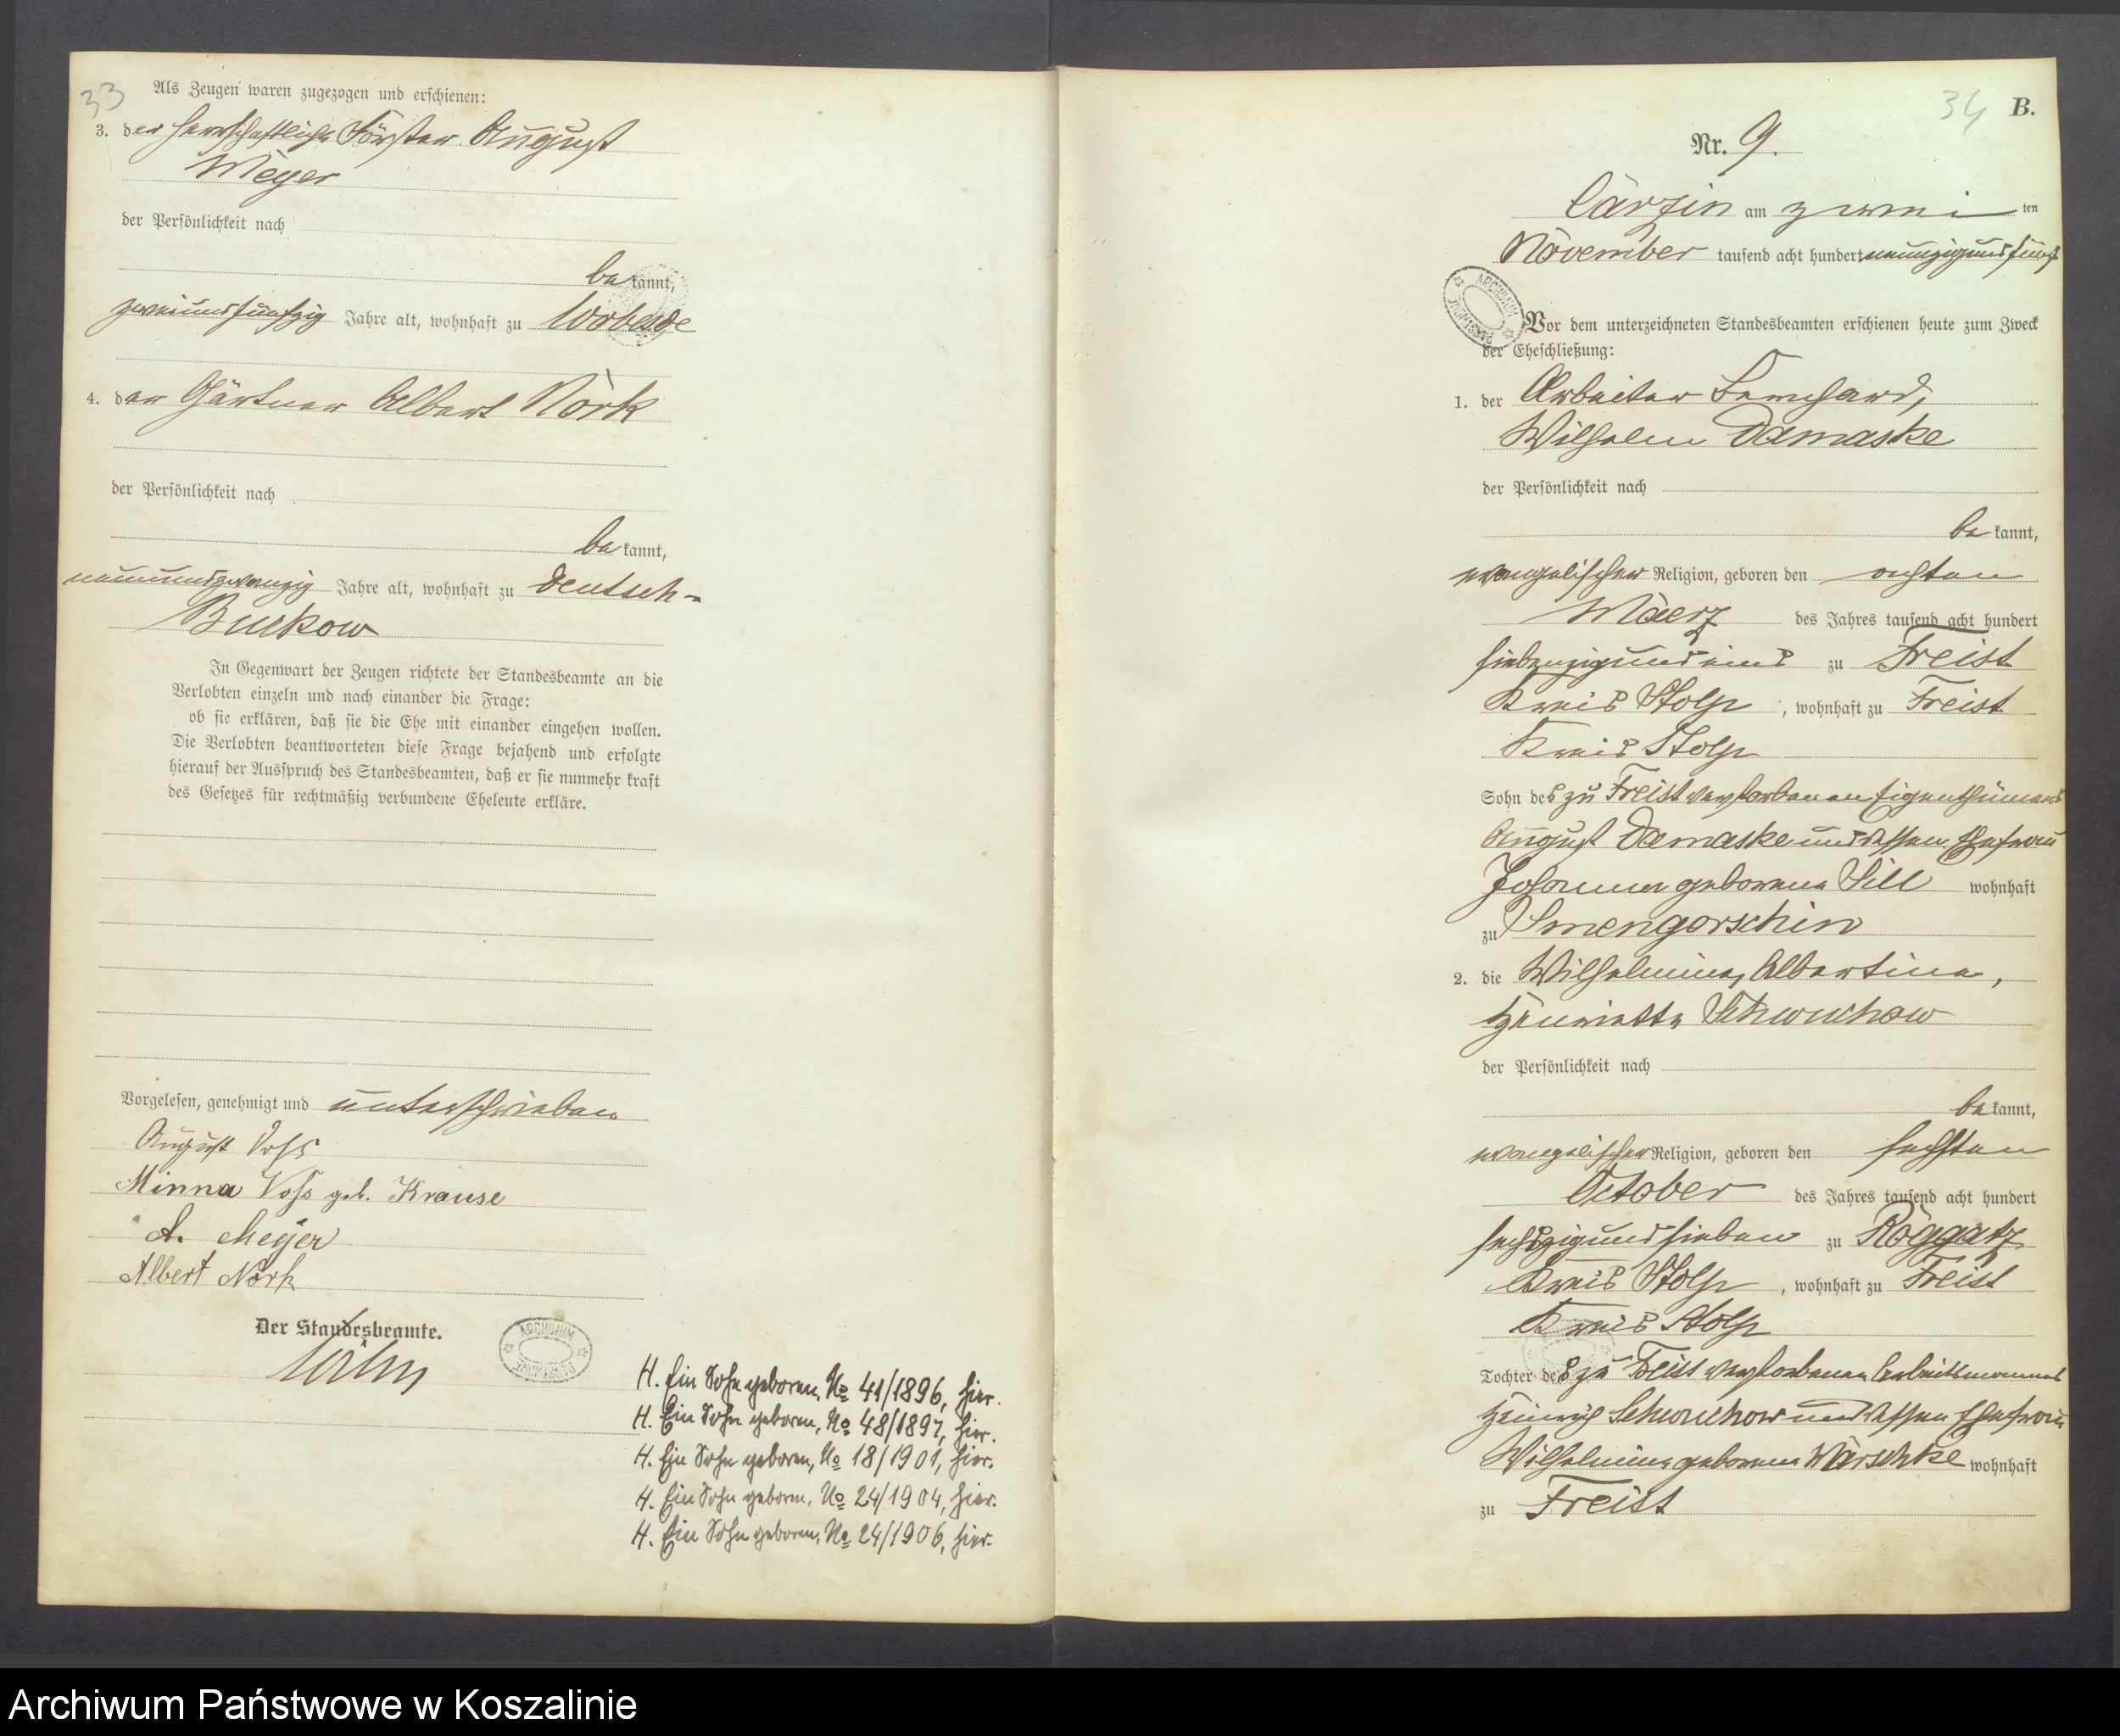 33
Als Zeugen waren zugezogen und erschienen:
3. der herrschaftliche Förster August
Meyer
der Persönlichkeit nach
be kannt,
zweiundfünfzig Jahre alt, wohnhaft zu Wobesde
4. der Gärtner Albert Nörk
der Persönlichkeit nach
be kannt,
neunundzwanzig Jahre alt, wohnhaft zu Deutsch-
Buckow
In Gegenwart der Zeugen richtete der Standesbeamte an die
Verlobten einzeln und nach einander die Frage:
ob sie erklären, daß sie die Ehe mit einander eingehen wollen.
Die Verlobten beantworteten diese Frage bejahend und erfolgte
hierauf der Ausspruch des Standesbeamten, daß er sie nunmehr kraft
des Gesetzes für rechtmäßig verbundene Eheleute erkläre.
Vorgelesen, genehmigt und unterschrieben
August Voss
Minna Voss geb. Krause
A. Meyer
Albert Nörk
Der Standesbeamte.
ARCHIWUM PAŃSTWOWE
H. Ein Sohn geboren, No 41/1896, hier.
H. Ein Sohn geboren, No 48/1897, hier.
H. Ein Sohn geboren, No 18/1901, hier.
H. Ein Sohn geboren, No 24/1904, hier.
H. Ein Sohn geboren, No 24/1906, hier.
34 B.
Nr. 9.
Carzin am zwei ten
November tausend acht hundert neunzigundfünf
ARCHIWUM PAŃSTWOWE
Vor dem unterzeichneten Standesbeamten erschienen heute zum Zweck
der Eheschließung:
1. der Arbeiter Bernhard,
Wilhelm Damaske
der Persönlichkeit nach
be kannt,
evangelischer Religion, geboren den achten
Maerz des Jahres tausend acht hundert
siebenzigundeins zu Freist
Kreis Stolp, wohnhaft zu Freist
Kreis Stolp
Sohn des zu Freist verstorbenen Eigenthümers
August Damaske und dessen Ehefrau
Johanna geborene Sill wohnhaft
zu Smengorschin
2. die Wilhelmine, Albertine,
Henriette Schwuchow
der Persönlichkeit nach
be kannt,
evangelischer Religion, geboren den sechsten
October des Jahres tausend acht hundert
sechszigundsieben zu Roggatz
Kreis Stolp, wohnhaft zu Freist
Kreis Stolp
Tochter des zu Freist verstorbenen Arbeitsmannes
Heinrich Schwuchow und dessen Ehefrau
Wilhelmine geborene Warschke wohnhaft
zu Freist
Archiwum Państwowe w Koszalinie